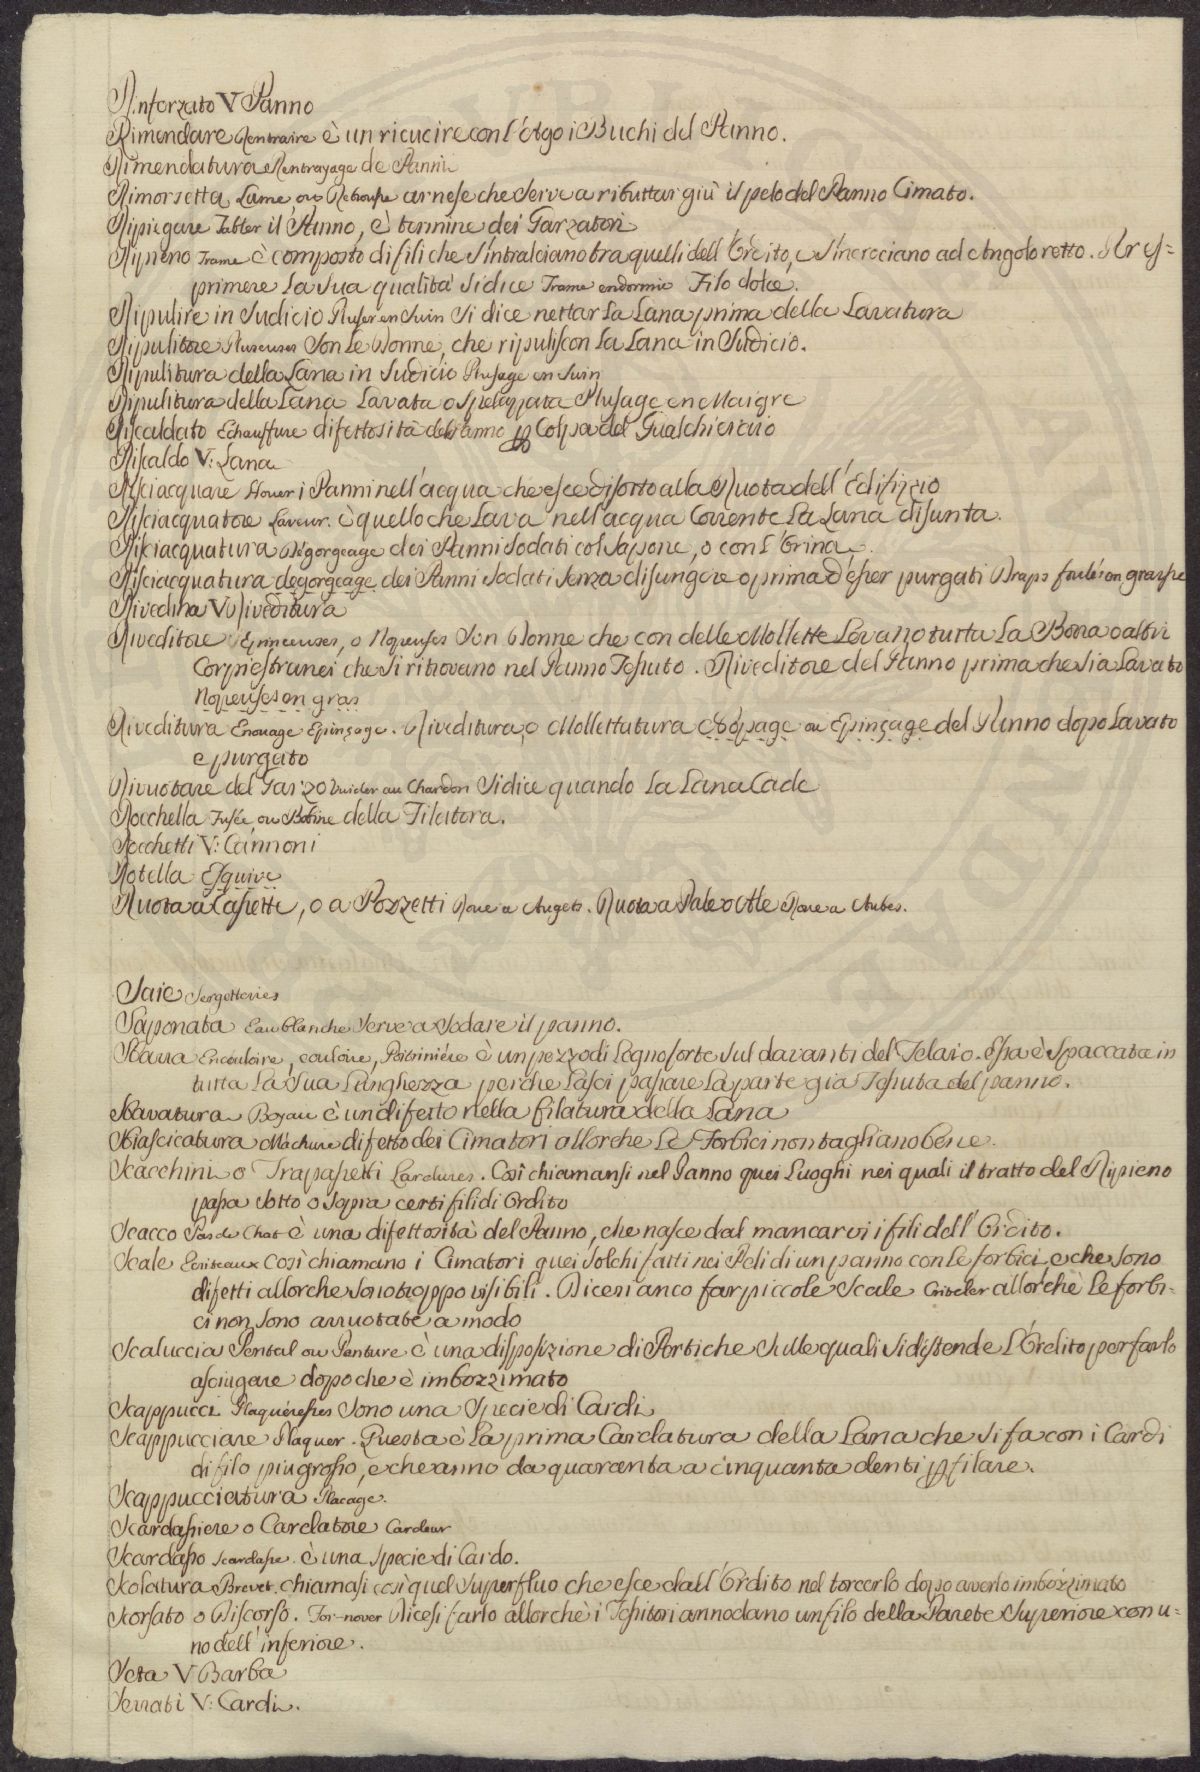 Rinforzato V Panno
Rimendare Rentraire è un ricucire con l'Ago i Buchi del Panno.
Rimendatura Rentrayage de Panni
Rimorsetta Lame ou Rebrousse arnese che serve a ributtar giù il pelo del Panno Cimato.
Ripiegare Tabler il Panno, è termine dei Garzatori
Ripieno Trame è composto di fili che s'intralciano tra quelli dell'Ordito, e s'incrociano ad Angolo retto. Per es=
primere la sua qualità si dice Trame endormie Filo dolce.
Ripulire in Sudicio Pluser en Suin si dice nettar la Lana prima della Lavatura
Ripulitore Pluseuses son le Donne, che ripuliscon la Lana in Sudicio.
Ripulitura della Lana in Sudicio Plusage en Suin
Ripulitura della Lana Lavata o Spelazzata Plusage en Maigre
Riscaldato Echauffure difettosità del Panno p Colpa del Gualchieraio
Riscaldo V: Lana
Risciacquare i Panni nell'acqua che esce di sotto alla Ruota dell'Edifizio
Risciacquatore Laveur. è quello che Lava nell'acqua Corrente la Lana disunta.
Risciacquatura Dégorgeage dei Panni sodati col Sapone, o con l'Orina.
Risciacquatura degorgeage dei Panni sodati senza disungere o prima d'esser purgati Draps foulés en graisse
Rivedina V Riveditura
Riveditore Epinceuses, o Nopeuses son Donne che con delle Mollette Levano tutta la Borra o altri
Corpi estranei che si ritrovano nel Panno Tessuto. Riveditore del Panno prima che sia Lavato
Nopeuses en gras
Riveditura Enouage Epinçage. Riveditura, o Mollettatura Nopage ou Epinçage del Panno dopo Lavato
e purgato
Rivuotare del Garzo Vuider au Chardon si dice quando la Lana Cade
Rocchella Fusée, ou Bobine della Filatora.
Rocchetti V: Cannoni
Rotella Esquive
Ruota a Cassette, o a Pozzetti Roue a Augets. Ruota a Pale o Ale Roue a Aubes.
Saie Sergetteries
Saponata Eau blanche serve a sodare il panno.
Sbarra Encouloire, couloire, Poitriniére è un pezzo di Legno forte sul davanti del Telaio. Essa è spaccata in
tutta la sua Lunghezza perche Lasci passare la parte gia Tessuta del panno.
Sbavatura Boyau è un difetto nella filatura della Lana
Sbiascicatura Mâchure difetto dei Cimatori allorche le Forbici non tagliano bene.
Scacchini o Trapassetti Lardures. Così chiamansi nel Panno quei Luoghi nei quali il tratto del Ripieno
passa sotto o sopra certi fili di Ordito
Scacco Pas de Chat è una difettosità del Panno, che nasce dal mancarvi i fili dell'Ordito.
Scale Ecriteaux così chiamano i Cimatori quei solchi fatti nei Peli di un panno con le forbici, e che sono
difetti allorche sono troppo visibili. Dicesi anco far piccole Scale Cribeler allorchè le forbi=
ci non sono arruotate a modo
Scaluccia Pental ou Penture è una disposizione di Pertiche sulle quali si distende l'Ordito per farlo
asciugare dopo che è imbozzimato
Scappucci Plaquéresses sono una Specie di Cardi
Scappucciare Plaquer. Questa è la prima Cardatura della Lana che si fa con i Cardi
di filo piu grosso, e che anno da quaranta a cinquanta denti p filare.
Scappucciatura Placage.
Scardassiere o Cardatore Cardeur
Scardasso Scardasse. è una specie di Cardo.
Scolatura Brevet. chiamasi così quel superfluo che esce dall'Ordito nel torcerlo dopo averlo imbozzimato
Scorsato o Discorso. For-nover Dicesi farlo allorchè i Tessitori annodano un filo della Parete Superiore con u=
no dell'inferiore.
Seta V Barba
Serrati V: Cardi.